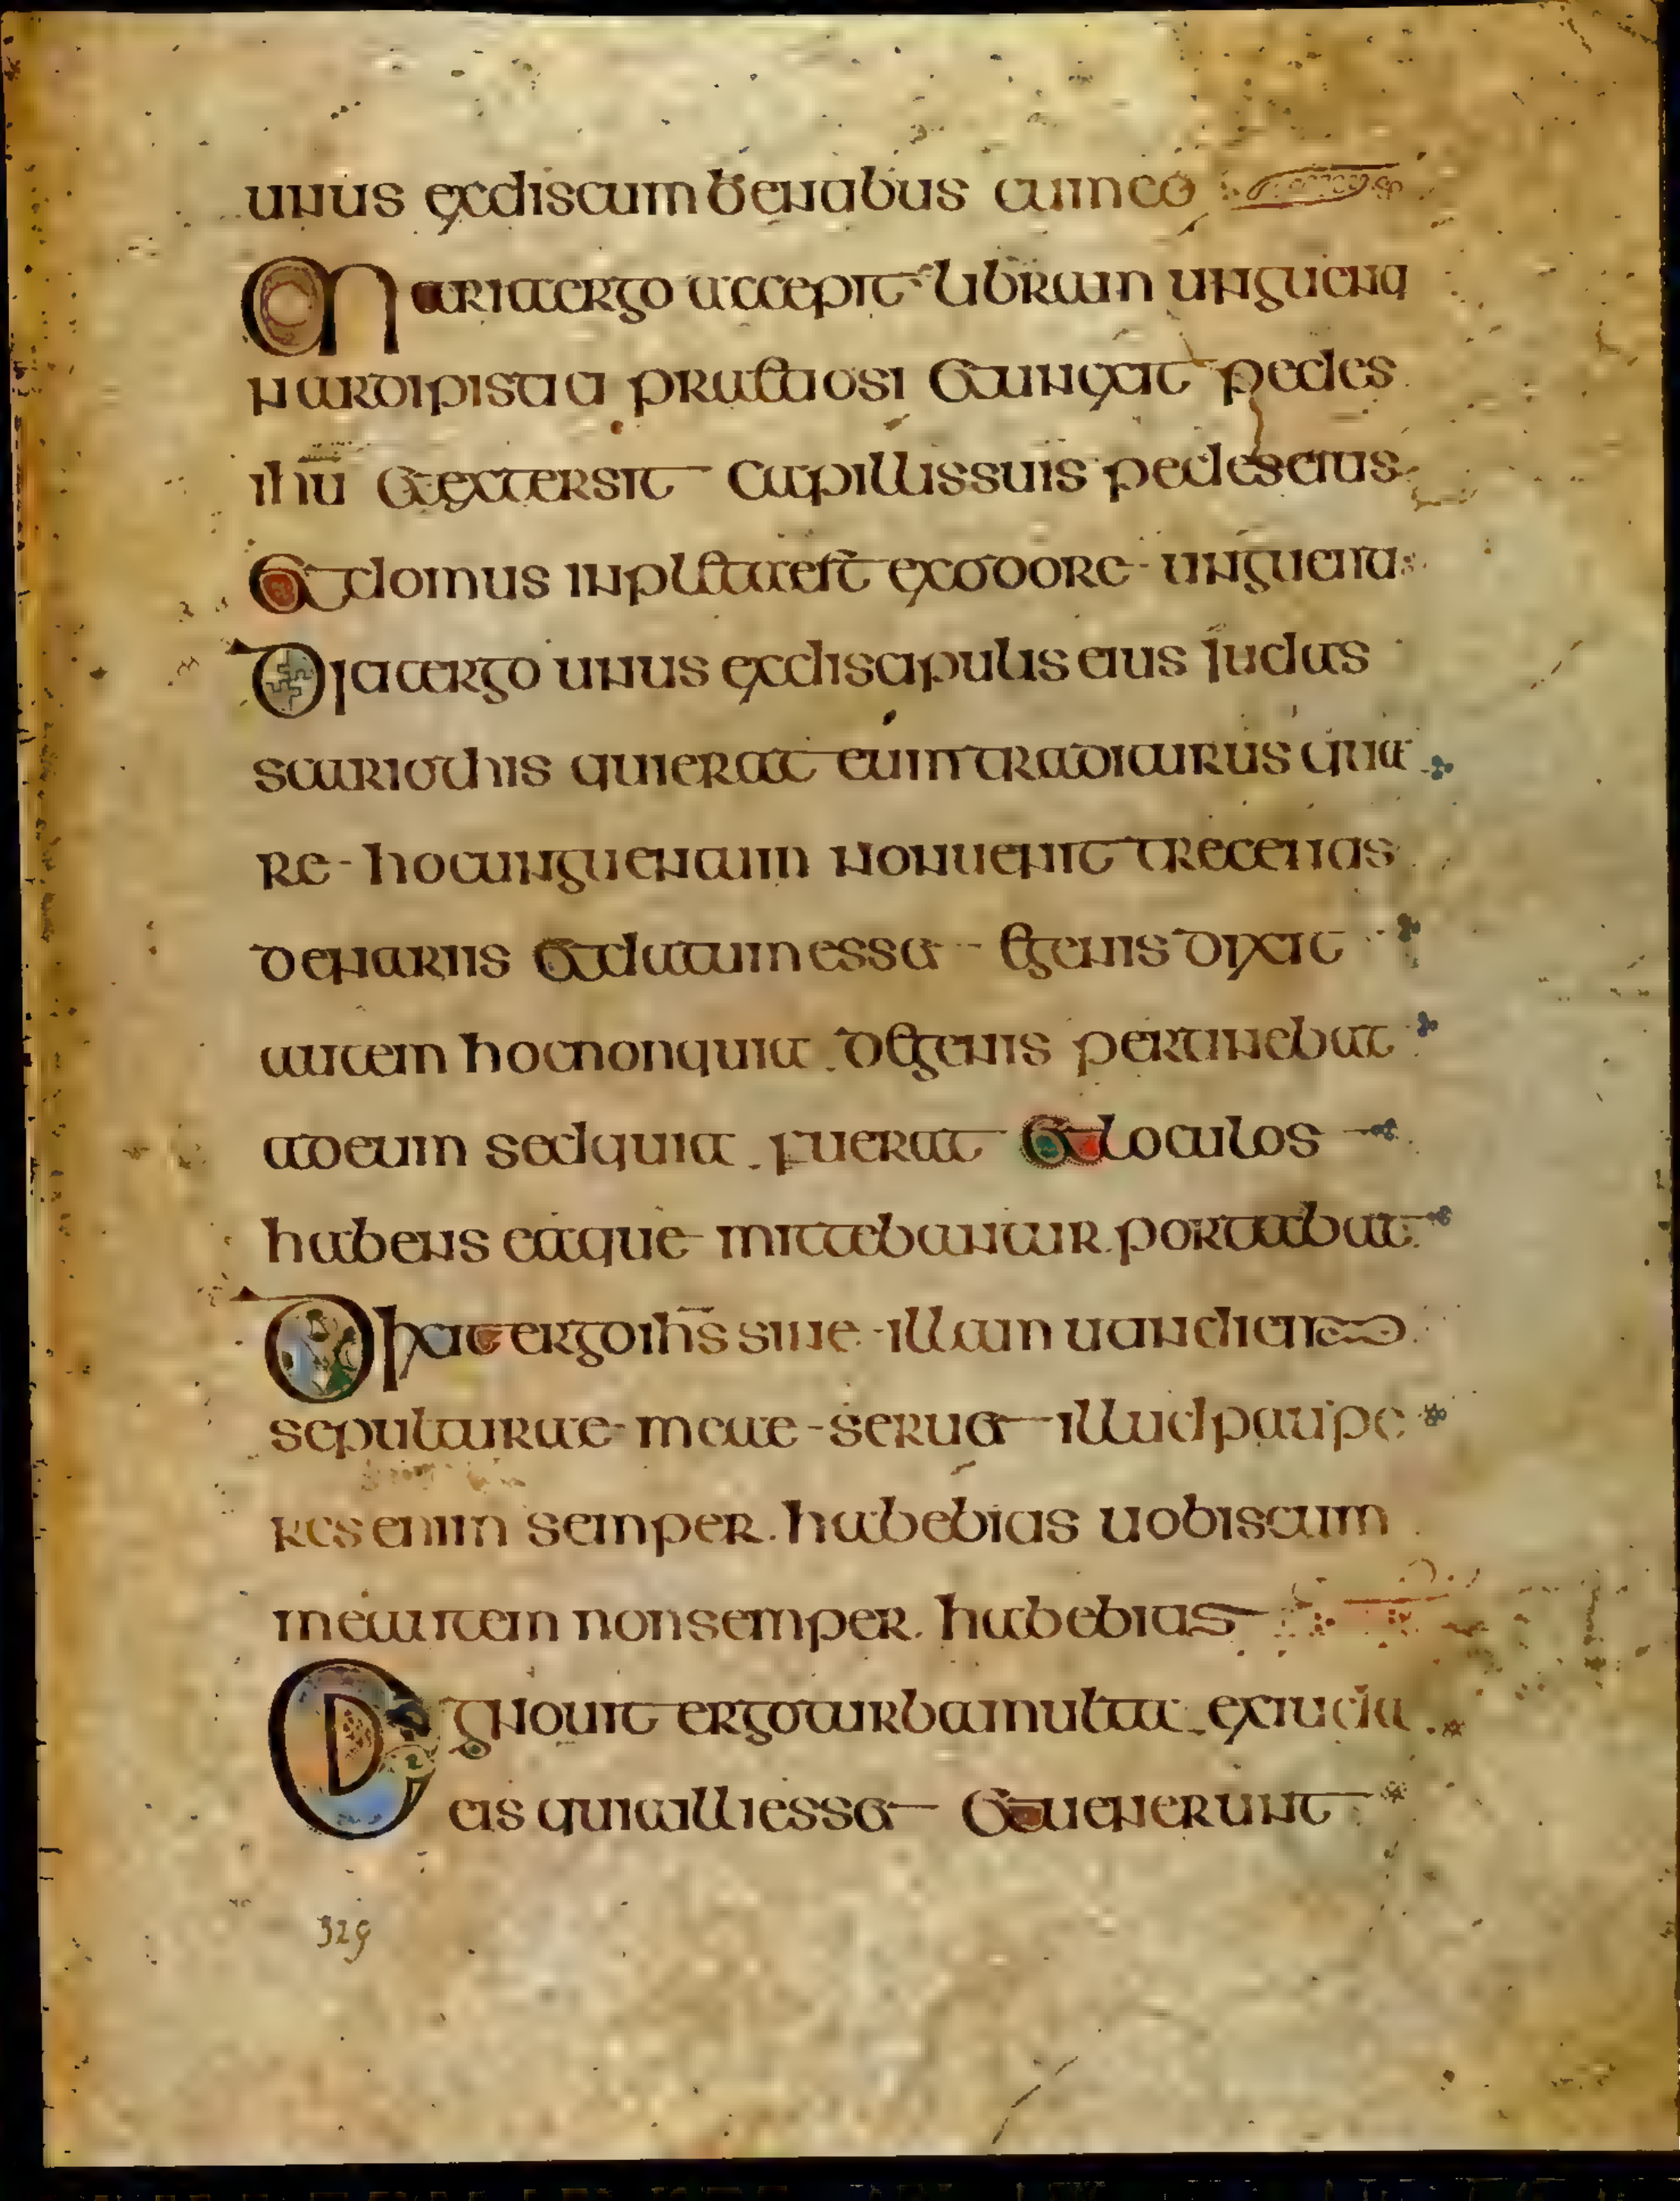 unus exdiscumbentibus cumeo
Mariaergo accepit libram ungenti
nardipistici praetiosi etunxit pedes
ihu etextersit capillissuis pedeseius
Etdomus inpletaest exodore unguenti
Dicitergo unus exdiscipulis eius iudas
scariothis quierat eumtraditurus qua
re hocunguentum nonuenit trecentis
denariis etdatumesset egenis dixit
autem hocnonquia degenis pertinebat
adeum sedquia fuerat etloculos
habens eaque mittebantur portabat
Dixitergoihs sine illam utindiem
sepulturae meae seruet illudpaupe
resenim semper habebitis uobiscum
meautem nonsemper habebitis
Cognouit ergoturbamulta exiudae
eis quiaillicesset etuenerunt
329